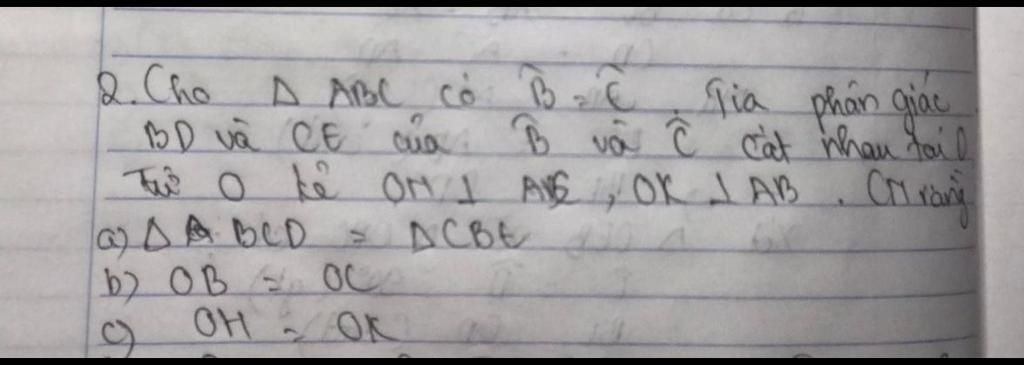 2. Cho Δ ABC có B̂ = Ĉ. Tia phân giác
BD và CE của B̂ và Ĉ cắt nhau tại O
Từ O kẻ OH ⊥ AC, OK ⊥ AB. CM rằng
a) Δ BCD = ΔCBE
b) OB = OC
c) OH = OK